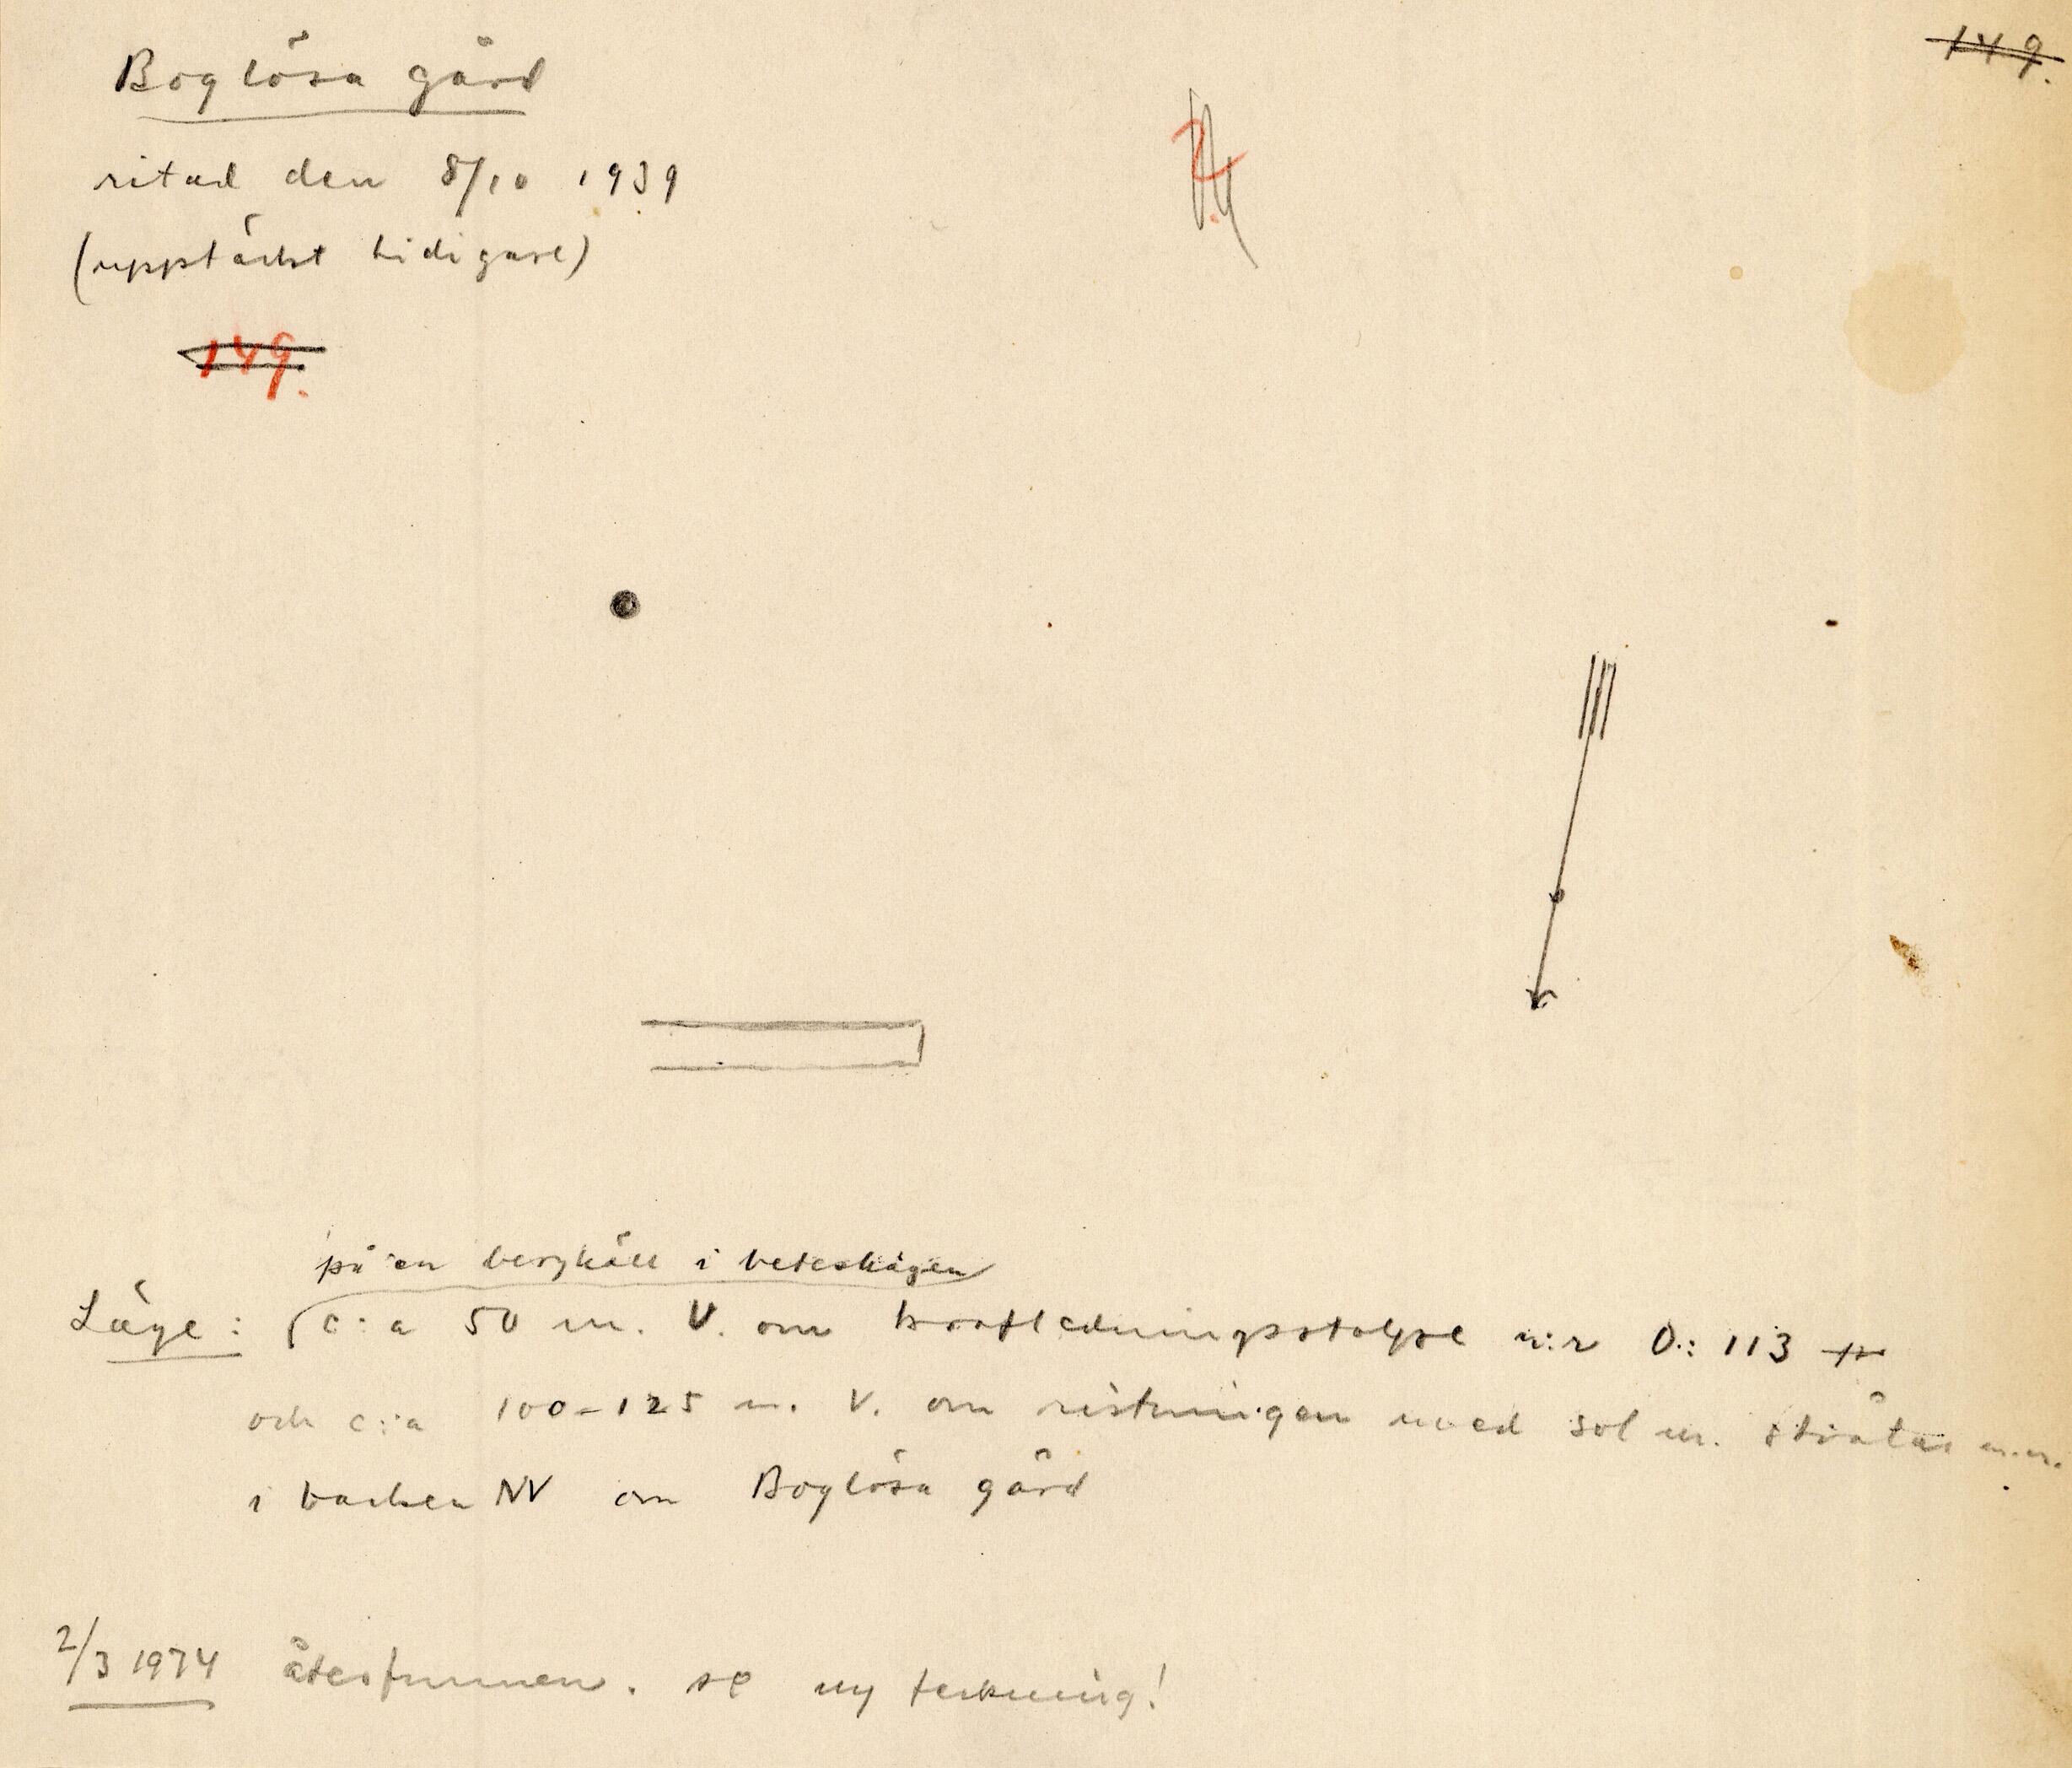 149.
Boglösa gård
ritad den 8/10 1939
(upptäckt tidigare)
149.
på en berghäll i beteshagen
Läge: c:a 50 m. V. om kraftledningsstolpe n:r O:113
och c:a 100-125 m. V. om ristningen med sol m. strålar m.m.
i backen NV om Boglösa gård
2/3 1974 återfunnen. se ny teckning!